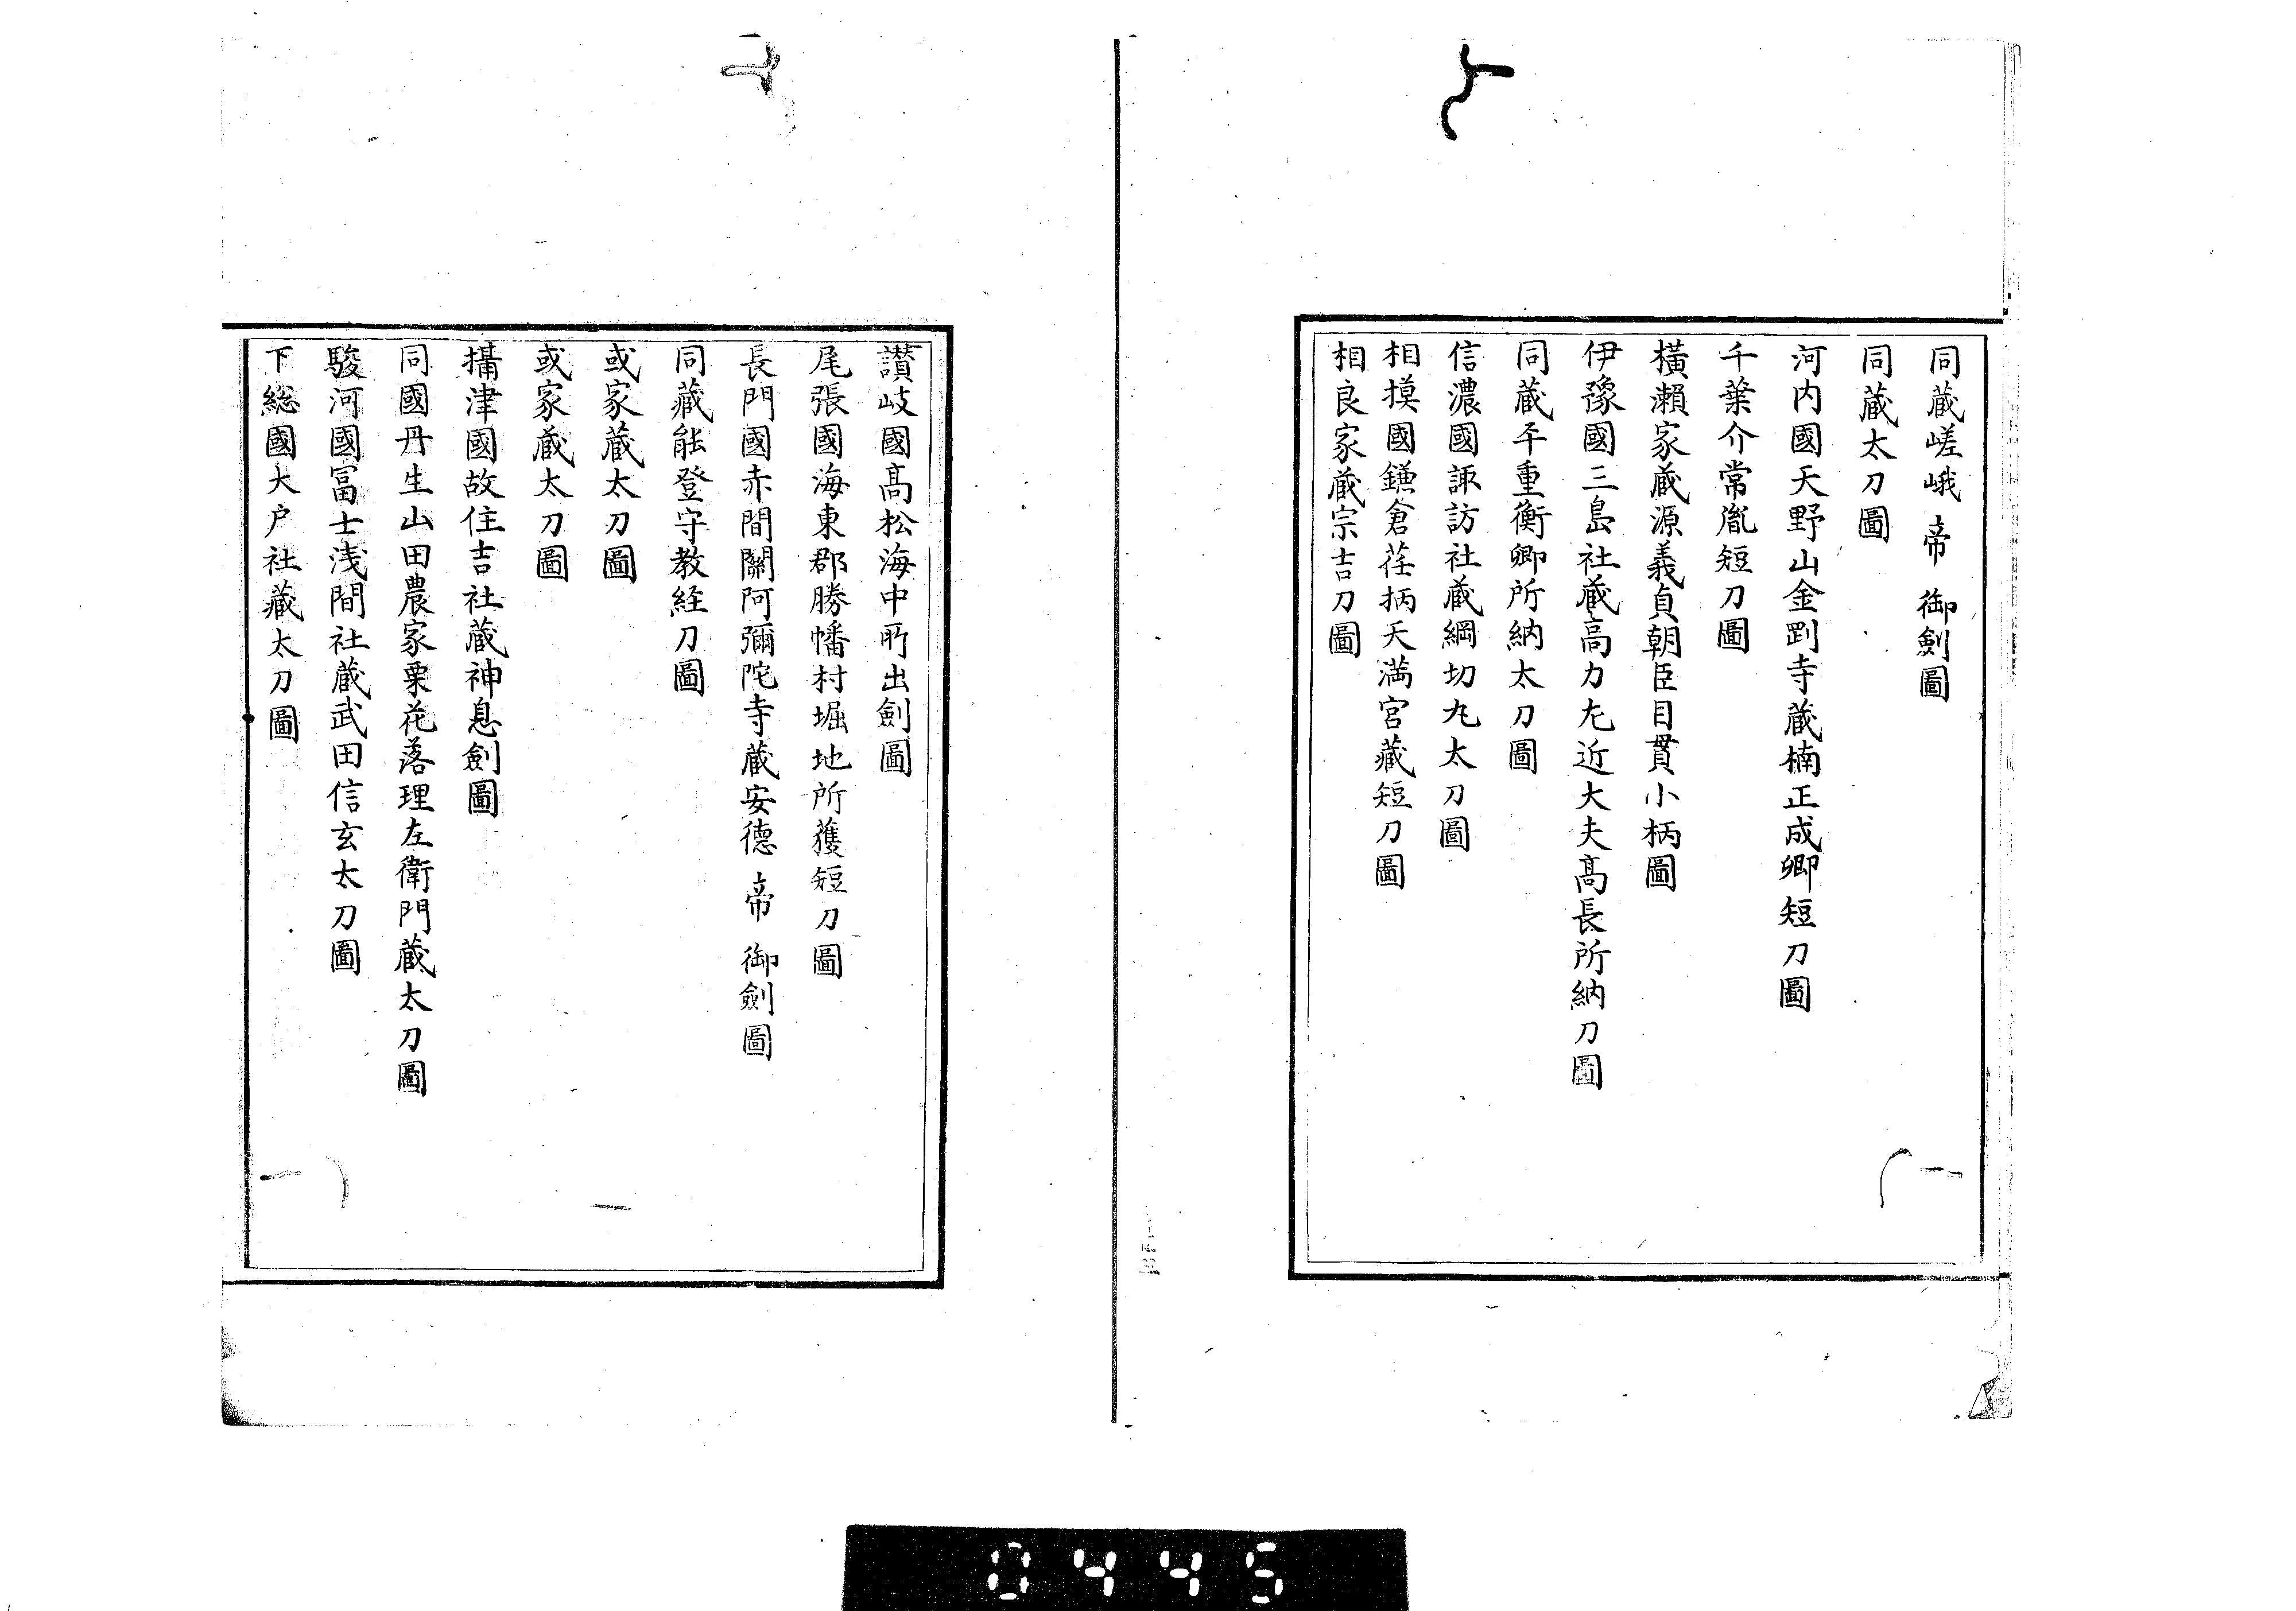 同蔵嵯峨帝御劍圖
同蔵太刀圖
河内國天野山金剛寺蔵楠正成卿短刀圖
千葉介常胤短刀圖
横瀬家蔵源義貞朝臣目貫小柄圖
伊豫國三島社蔵高力左近大夫髙長所納刀圖
同蔵平重衡卿所納太刀圖
信濃國諏訪社蔵綱切丸太刀圖
相摸國鎌倉荏柄天満宮蔵短刀圖
相良家蔵宗吉刀圖
讃岐國髙松海中所出劍圖
尾張國海東郡勝幡村堀地所獲短刀圖
長門國赤間關阿彌陀寺蔵安德帝御劍圖
同蔵能登守教経刀圖
或家蔵太刀圖
或家蔵太刀圖
攝津國故住吉社蔵神息劍圖
同國丹生山田農家栗花落理左衛門蔵太刀圖
駿河國冨士浅間社蔵武田信玄太刀圖
下総國大户社蔵太刀圖
0445